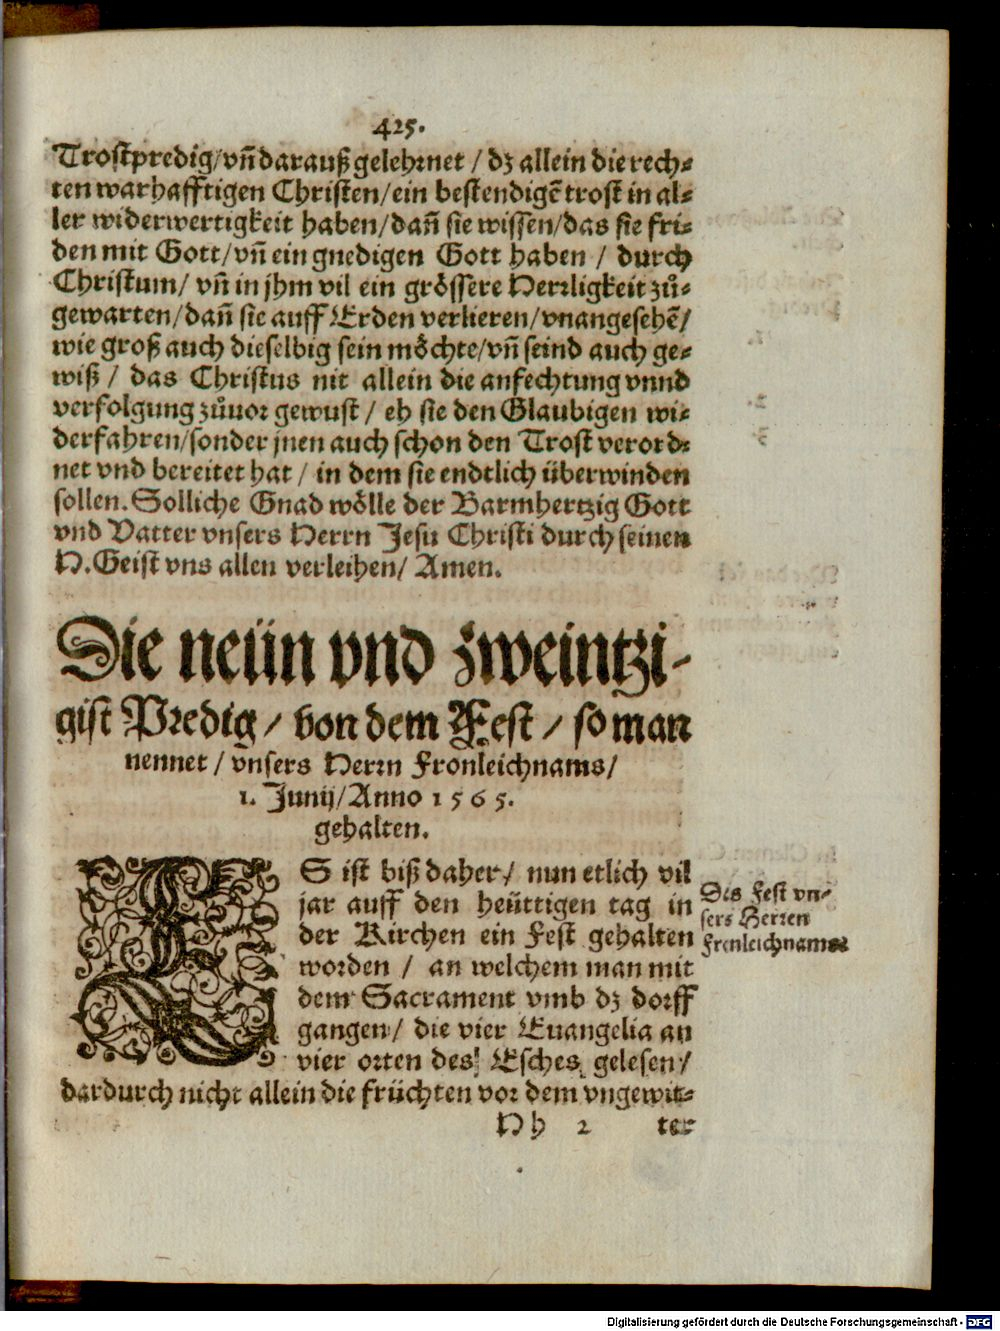 425.
Trostpredig/ vñ darauß gelehrnet / dz allein die rech-
ten warhafftigen Christen/ ein bestendigẽ trost in al-
ler widerwertigkeit haben/ dañ sie wissen/ das sie fri-
den mit Gott/ vñ ein gnedigen Gott haben / durch
Christum/ vñ in jhm vil ein grössere Herrligkeit zů-
gewarten/ dañ sie auff Erden verlieren/ vnangesehẽ/
wie groß auch dieselbig sein möchte/ vñ seind auch ge-
wiß / das Christus nit allein die anfechtung vnnd
verfolgung zůuor gewust / eh sie den Glaubigen wi-
derfahren/ sonder jnen auch schon den Trost verord-
net vnd bereitet hat / in dem sie endtlich überwinden
sollen. Solliche Gnad wölle der Barmhertzig Gott
vnd Vatter vnsers Herrn Jesu Christi durch seinen
H. Geist vns allen verleihen/ Amen.
Die neün vnd zweintzi-
gist Predig/ von dem Fest / so man
nennet / vnsers Herrn Fronleichnams/
1. Junij/ Anno 1565.
gehalten.
ES ist biß daher/ nun etlich vil
jar auff den heüttigen tag in
der Kirchen ein Fest gehalten
worden / an welchem man mit
dem Sacrament vmb dz dorff
gangen/ die vier Euangelia an
vier orten des Esches gelesen/
dardurch nicht allein die früchten vor dem vngewit-
Das Fest vn-
sers Herren
Fronleichnams
Hh 2 ter
Digitalisierung gefördert durch die Deutsche Forschungsgemeinschaft - DFG